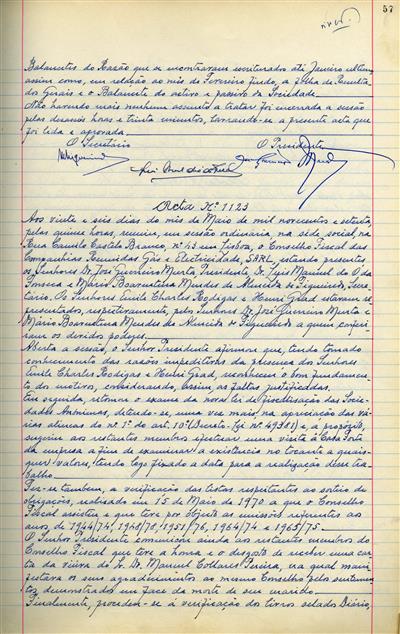 57
Balancetes do Razão que se encontravam escriturados até Janeiro último
assim como, em relação ao mês de Fevereiro findo, a folha de Resulta
dos Gerais e o Balancete do activo e passivo da Sociedade.
Não havendo mais nenhum assunto a tratar foi encerrada a sessão
pelas dezasseis horas e trinta minutos, lavrando-se a presente acta que
foi lida e aprovada.
O Secretário O Presidente
Acta Nº 1123
Aos vinte e seis dias do mês de Maio de mil novecentos e setenta,
pelas quinze horas, reuniu, em sessão ordinária, na sede social, na
Rua Camilo Castelo Branco, nº 43 em Lisboa, o Conselho Fiscal das
Companhias Reunidas Gás e Electricidade, SARL, estando presentes
os Senhores Dr. José Guerreiro Murta, Presidente, Dr. Luis Manuel do O da
Fonseca e Mário Boaventura Mendes de Almeida de Figueiredo, Secre
tário. Os Senhores Emile Charles Rodigas e Henri Glad estavam re
presentados, respectivamente, pelos Senhores Dr. José Guerreiro Murta e
Mário Boaventura Mendes de Almeida de Figueiredo a quem conferi
ram os devidos poderes.
Aberta a sessão, o Senhor Presidente afirmou que, tendo tomado
conhecimento das razões impeditivas da presença dos Senhores
Emile Charles Rodigas e Henri Glad, reconheceu o bom fundamento
dos motivos, considerando, assim, as faltas justificadas.
Em seguida, retomou o exame da nova lei de fiscalização das Socie
dades Anónimas, detendo-se, uma vez mais, na apreciação das vá
rias alíneas do nº 1º do art. 10º (Decreto-lei nº 49381) e, a propósito,
sugeriu aos restantes membros efectuar uma visita à Casa Forte
da empresa a fim de examinar a existência no tocante a quais-
quer valores, tendo logo fixado a data para a realização desse tra
balho.
Fez-se também, a verificação das listas respeitantes ao sorteio de
obrigações, realizado em 15 de Maio de 1970 a que o Conselho
Fiscal assistiu e que teve por objecto as emissões referentes aos
anos de 1944/74, 1948/78, 1951/76, 1964/74 e 1965/75.
O Senhor Presidente comunicou ainda aos restantes membros do
Conselho Fiscal que teve a honra e o desgosto de receber uma car
ta da viúva do Sr. Dr. Manuel Collares Pereira, na qual mani
festava os seus agradecimentos ao mesmo Conselho pelos sentimen
tos demonstrados em face da morte de seu marido.
Finalmente, procedeu-se à verificação dos livros selados Diário,